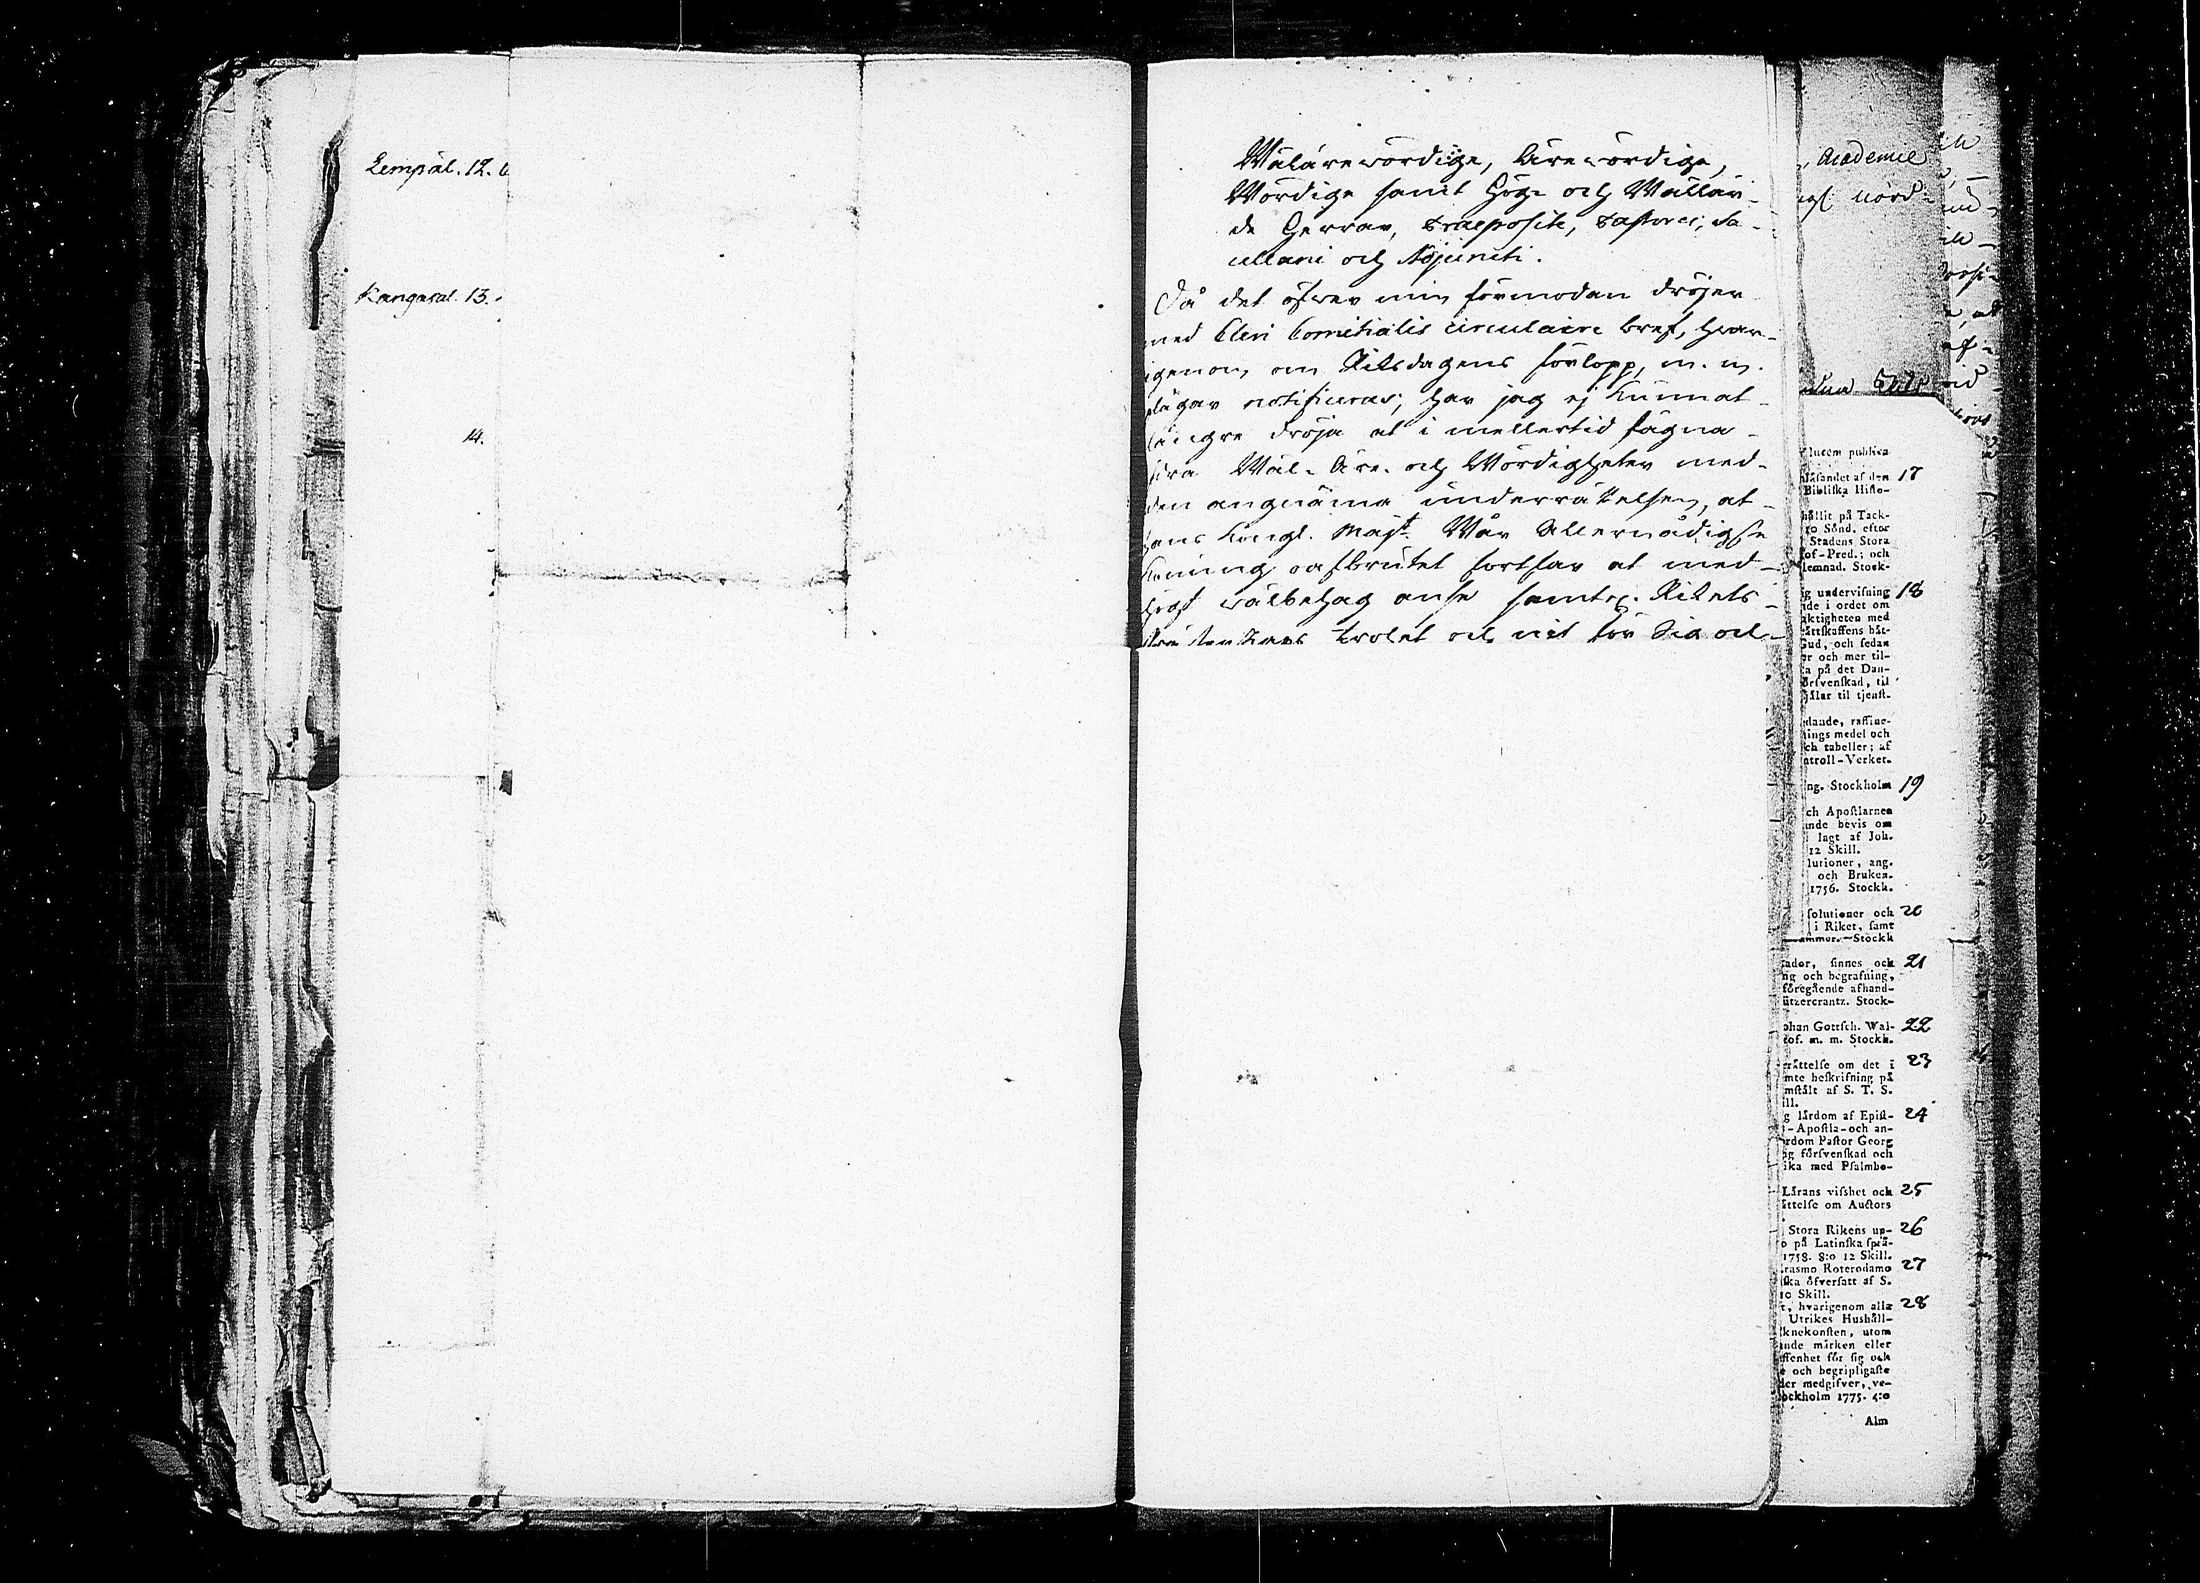 Lempäl. 12.
Kangasal. 13.
14.
Wälärewördige, Ärewördige,
Wördige samt Hög- och Wällär-
de Herrar, Praepositi, Pastores, Sa-
cellani och Adjuncti.
Då det öfwer min förmodan dröjer
med Cleri Comitialis circulaire bref, hvar-
igenom om Riksdagens förlopp, m. m.
plägar notificeras, har jag ej kunnat
längre dröja at i mellertid fägna
Wäl- Äre- och Wördigheter med
den angnäma underrättelsen, at
hans Kongl. Majt. Wår Allernådigste
Konung oafbrutet fortfar at med
högt wälbehag anse samtl. Rikets
trohet och nit för Sig och
Academie
lucem publica
låsandet af den 17
Bibliska Histo-
hållit på Tack-
ro Sönd. efter
Stadens Stora
of-Pred.; och
lemnad. Stock-
g undervisning 18
de i ordet om
aktigheten med
rättskaffens båt-
Gud, och sedan
er och mer til-
a på det Dan-
örsvenskad, til
själar til tjenst.
dande, raffine-
nings medel och
ch tabeller; af
ntroll-Verket.
ng. Stockholm 19
ch Apostlarnes
ande bevis om
lagt af Joh.
12 Skill.
lutioner, ang.
och Bruken.
1756. Stockh.
solutioner och 20
i Riket, samt
ammor. Stockh
ador, sinnes och 21
ng och begrafning,
föregående afhand-
ützercrantz. Stock-
ohan Gottsch. Wal- 22
rof. m. m. Stockh.
rättelse om det i 23
mte beskrifning på
mstält af S. T. S.
ill.
g lärdom af Epist- 24
t-Apostla-och an-
rdom Pastor Georg
ig försvenskad och
ika med Psalmbo-
Lärans visshet och 25
ättelse om Auctors
Stora Rikens up- 26
o på Latinska språ-
1758. 8:o 12 Skill.
rasmo Roterodamo 27
ska öfversatt af S.
10 Skill.
t, hvarigenom alla 28
Utrikes Hushåll-
knekonsten, utom
ande märken eller
ffenhet för sig och
e och begripligaste
der medgifver, ve-
ockholm 1775. 4:o
Alm